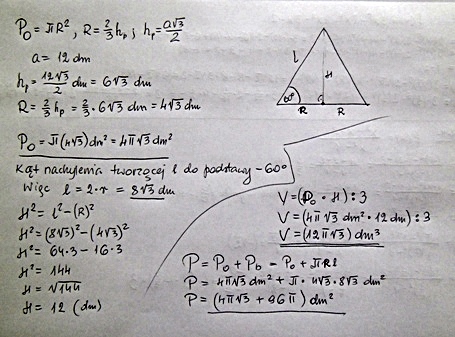 P₀ = πR², R = 2/3 hp ; hp = a√3/2
a = 12 dm
hp = 12√3/2 dm = 6√3 dm
R = 2/3 hp = 2/3 · 6√3 dm = 4√3 dm
P₀ = π(4√3) dm² = 4π√3 dm²
l
H
60°
R
R
Kąt nachylenia tworzącej l do podstawy – 60°
Więc l = 2·r = 8√3 dm
H² = l² – (R)²
H² = (8√3)² – (4√3)²
H² = 64·3 – 16·3
H² = 144
H = √144
H = 12 (dm)
V = (P₀ · H) : 3
V = (4π√3 dm² · 12 dm) : 3
V = (12π√3) dm³
P = P₀ + Pb = P₀ + πRl
P = 4π√3 dm² + π · 4√3 · 8√3 dm²
P = (4π√3 + 96π) dm²